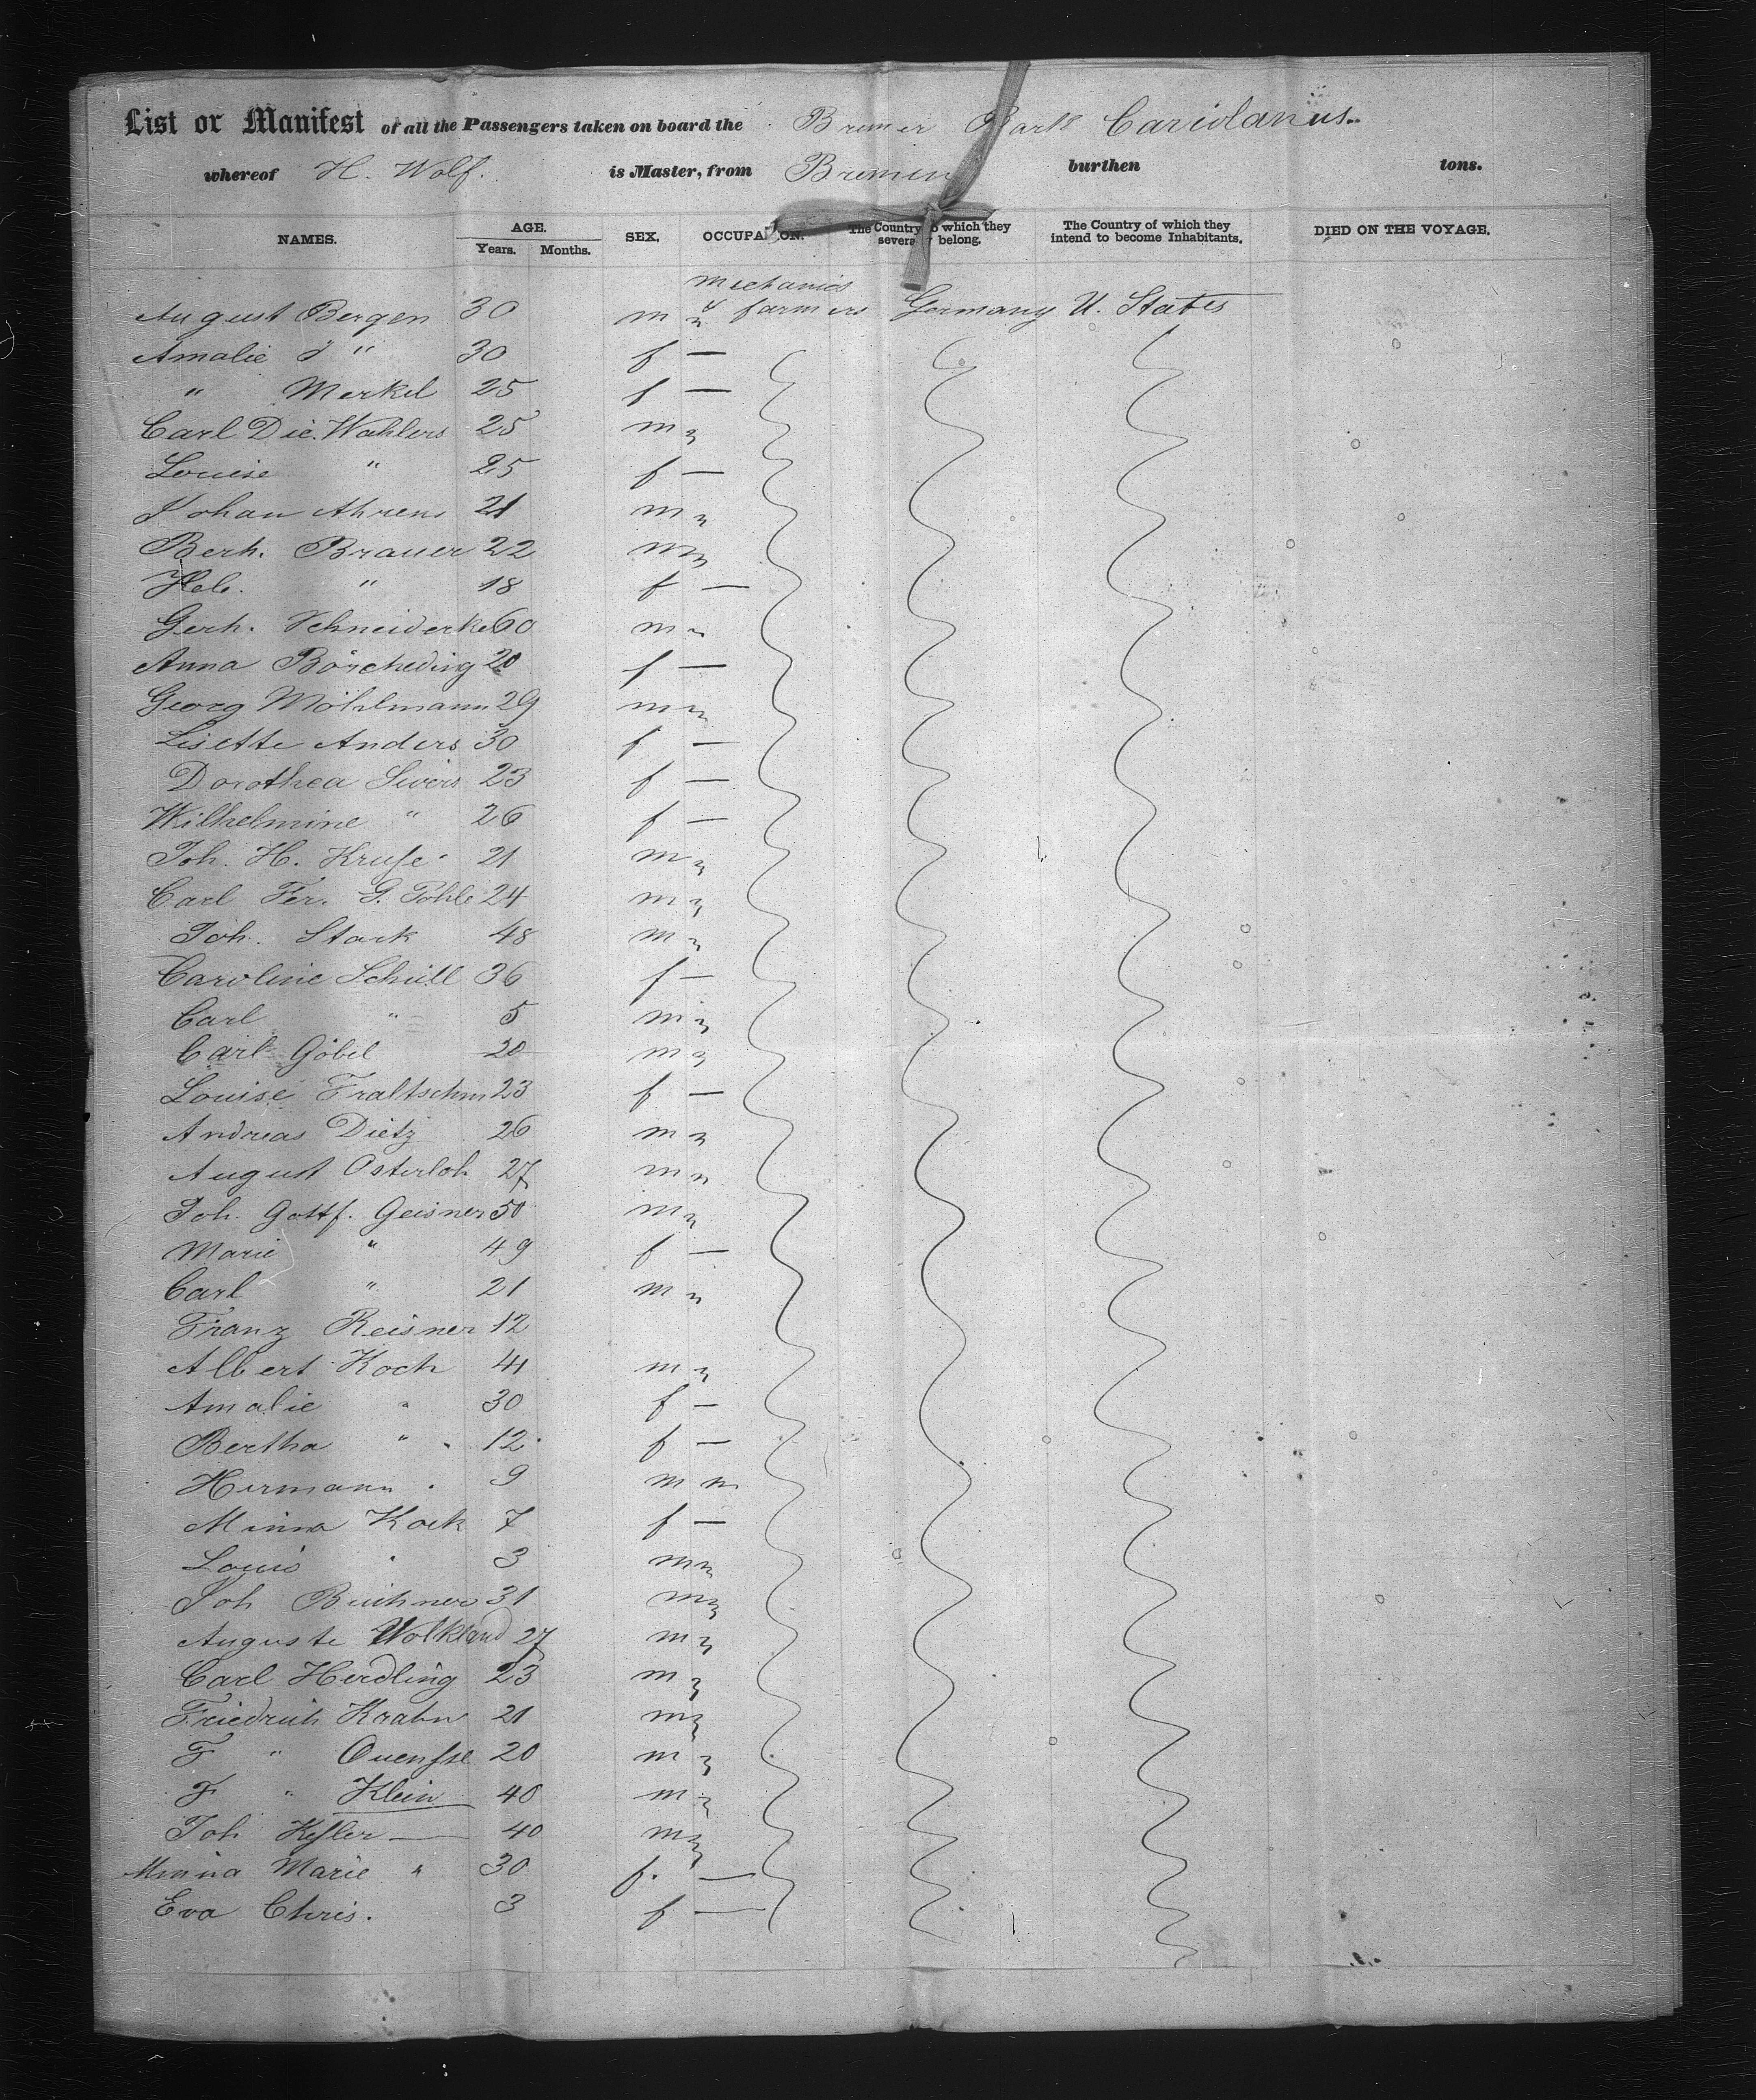 List or Manifest of all the Passengers taken on board the Bremer Bark Cariolanus
whereof H. Wolf. is Master, from Bremen burthen tons.
NAMES. AGE. Years. Months. SEX. OCCUPATION. The Country to which they severally belong. The Country of which they intend to become Inhabitants. DIED ON THE VOYAGE.
mechanics
August Bergen 30 m & farmers Germany U. States
Amalie " 30 f —
" Merkel 25 f —
Carl Die. Wahlers 25 m
Louise " 25 f —
Johan Ahrens 21 m
Berh. Brauer 22 m
Hel. " 18 f —
Gerh. Schneiderke 60 m
Anna Börcheding 20 f —
Georg Möhlmann 29 m
Lisette Anders 30 f —
Dorothea Sivers 23 f —
Wilhelmine " 26 f —
Joh. H. Kruse 21 m
Carl Fer. G. Pöhle 24 m
Joh. Stark 48 m
Caroline Schüll 36 f —
Carl " 5 m
Carl Göbel 20 m
Louise Fraltschm 23 f —
Andreas Dietz 26 m
August Osterloh 27 m
Joh. Gottf. Geisner 50 m
Marie " 49 f —
Carl " 21 m
Franz Reisner 12
Albert Koch 41 m
Amalie " 30 f —
Bertha " 12 f —
Hermann " 9 m
Minna Kock 7 f —
Louis " 3 m
Joh Buchner 31 m
Auguste Wolkland 27 m
Carl Herdling 23 m
Friedrich Krahn 21 m
F " 20 m
F " Klein 40 m
Joh Kesler — 40 m
Minna Marie " 30 f. —
Eva Chris. 3 f —